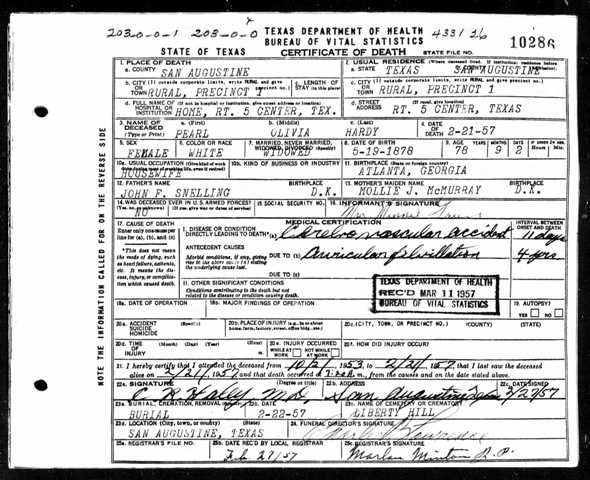 203-0-0-1 203-0-0 TEXAS DEPARTMENT OF HEALTH 433126
BUREAU OF VITAL STATISTICS 10286
STATE OF TEXAS CERTIFICATE OF DEATH STATE FILE NO.
1. PLACE OF DEATH 2. USUAL RESIDENCE (Where deceased lived. If institution: residence before admission)
a. COUNTY SAN AUGUSTINE a. STATE TEXAS b. COUNTY SAN AUGUSTINE
b. CITY (If outside corporate limits, write RURAL and give precinct no.) c. LENGTH OF STAY (in this place) c. CITY (If outside corporate limits, write RURAL and give precinct no.)
OR TOWN RURAL, PRECINCT 1 OR TOWN RURAL, PRECINCT 1
d. FULL NAME OF (If not in hospital or institution, give street address or location) d. STREET ADDRESS (If rural, give location)
HOSPITAL OR INSTITUTION HOME, RT. 5 CENTER, TEX. RT. 5 CENTER, TEXAS
3. NAME OF DECEASED a. (First) b. (Middle) c. (Last) 4. DATE OF DEATH
PEARL OLIVIA HARDY 2-21-57
5. SEX 6. COLOR OR RACE 7. MARRIED, NEVER MARRIED, WIDOWED, DIVORCED (Specify) 8. DATE OF BIRTH 9. AGE
FEMALE WHITE WIDOWED 5-19-1878 78 9 2
10a. USUAL OCCUPATION 10b. KIND OF BUSINESS OR INDUSTRY 11. BIRTHPLACE (State or foreign country)
HOUSEWIFE ATLANTA, GEORGIA
12. FATHER'S NAME BIRTHPLACE 13. MOTHER'S MAIDEN NAME BIRTHPLACE
JOHN F. SNELLING D.K. MOLLIE J. McMURRAY D.K.
14. WAS DECEASED EVER IN U.S. ARMED FORCES? 15. SOCIAL SECURITY NO. 16. INFORMANT'S SIGNATURE
(Yes, no, or unknown) (If yes, give war or dates of service)
NO
17. CAUSE OF DEATH MEDICAL CERTIFICATION INTERVAL BETWEEN ONSET AND DEATH
Enter only one cause per line for (a), (b), and (c)
I. DISEASE OR CONDITION DIRECTLY LEADING TO DEATH (a) Cerebro vascular accident 11 days
This does not mean the mode of dying, such as heart failure, asthenia, etc. It means the disease, injury, or complication which caused death.
ANTECEDENT CAUSES
Morbid conditions, if any, giving rise to the above cause (a) stating the underlying cause last.
DUE TO (b) Auricular fibrillation 4 yrs
DUE TO (c)
II. OTHER SIGNIFICANT CONDITIONS
Conditions contributing to the death but not related to the disease or condition causing death.
TEXAS DEPARTMENT OF HEALTH
REC'D MAR 11 1957
BUREAU OF VITAL STATISTICS
18a. DATE OF OPERATION 18b. MAJOR FINDINGS OF OPERATION 19. AUTOPSY?
YES NO
20a. ACCIDENT SUICIDE HOMICIDE (Specify) 20b. PLACE OF INJURY (e.g. in or about home, farm, factory, street, office bldg., etc.) 20c. (CITY, TOWN, OR PRECINCT NO.) (COUNTY) (STATE)
20d. TIME OF INJURY (Month) (Day) (Year) (Hour) 20e. INJURY OCCURRED WHILE AT WORK NOT WHILE AT WORK 20f. HOW DID INJURY OCCUR?
21. I hereby certify that I attended the deceased from 10/2/ 1953 to 2/21/ 1957, that I last saw the deceased
alive on 2/21/ 1957 and that death occurred at m., from the causes and on the date stated above.
22a. SIGNATURE (Degree or title) 22b. ADDRESS 22c. DATE SIGNED
M.D. San Augustine, Texas 2/27/57
23a. BURIAL, CREMATION, REMOVAL 23b. DATE 23c. NAME OF CEMETERY OR CREMATORY
BURIAL 2-22-57 LIBERTY HILL
23d. LOCATION (City, town, or county) (State) 24. FUNERAL DIRECTOR'S SIGNATURE
SAN AUGUSTINE, TEXAS
25a. REGISTRAR'S FILE NO. 25b. DATE REC'D BY LOCAL REGISTRAR 25c. REGISTRAR'S SIGNATURE
Feb 27/57 Marlan Minton
NOTE THE INFORMATION CALLED FOR ON THE REVERSE SIDE